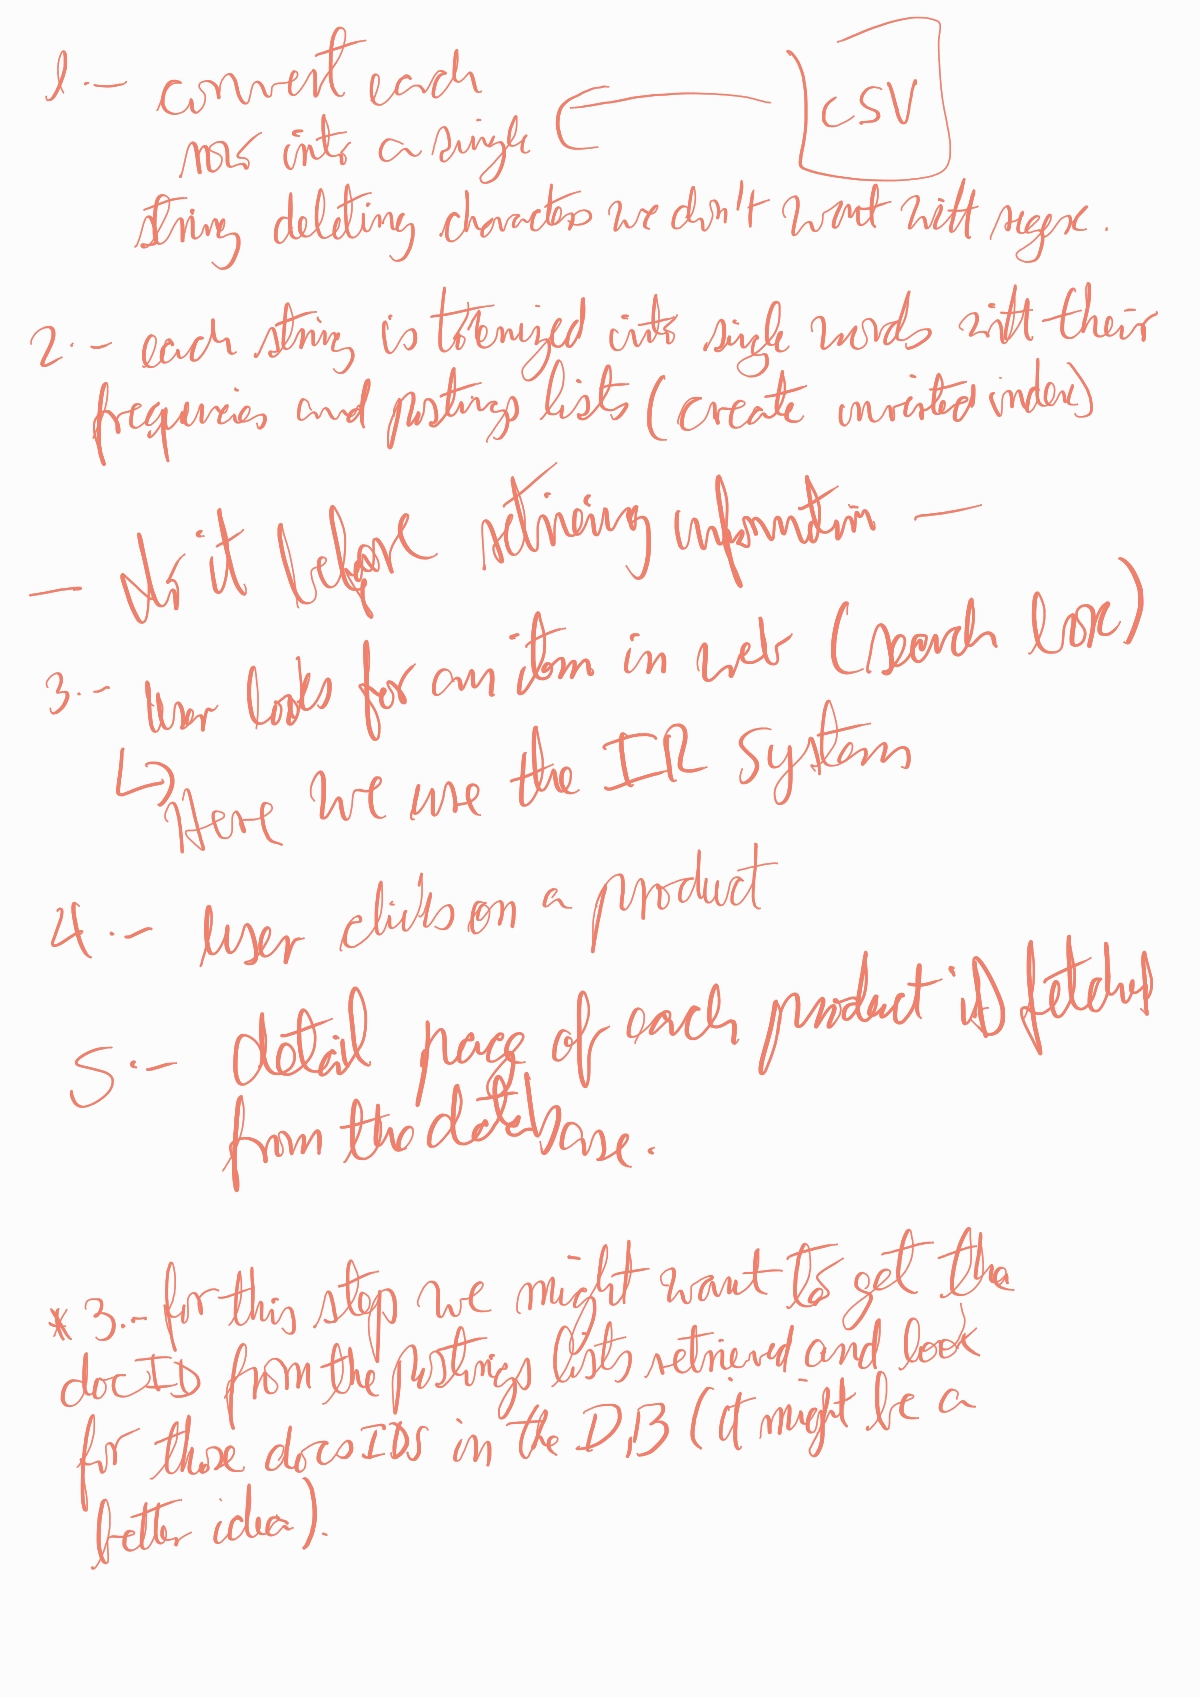 1.- convert each
row into a single
CSV
string deleting characters we don't want with regex.
2.- each string is tokenized into single words with their
frequencies and postings lists (create inverted index)
— do it before retrieving information —
3.- User looks for an item in web (search box)
↳ Here we use the IR System
4.- User clicks on a product
5.- detail page of each product is fetched
from the database.
*3.- for this step we might want to get the
docID from the postings lists retrieved and look
for those docsIDS in the DB (it might be a
better idea).